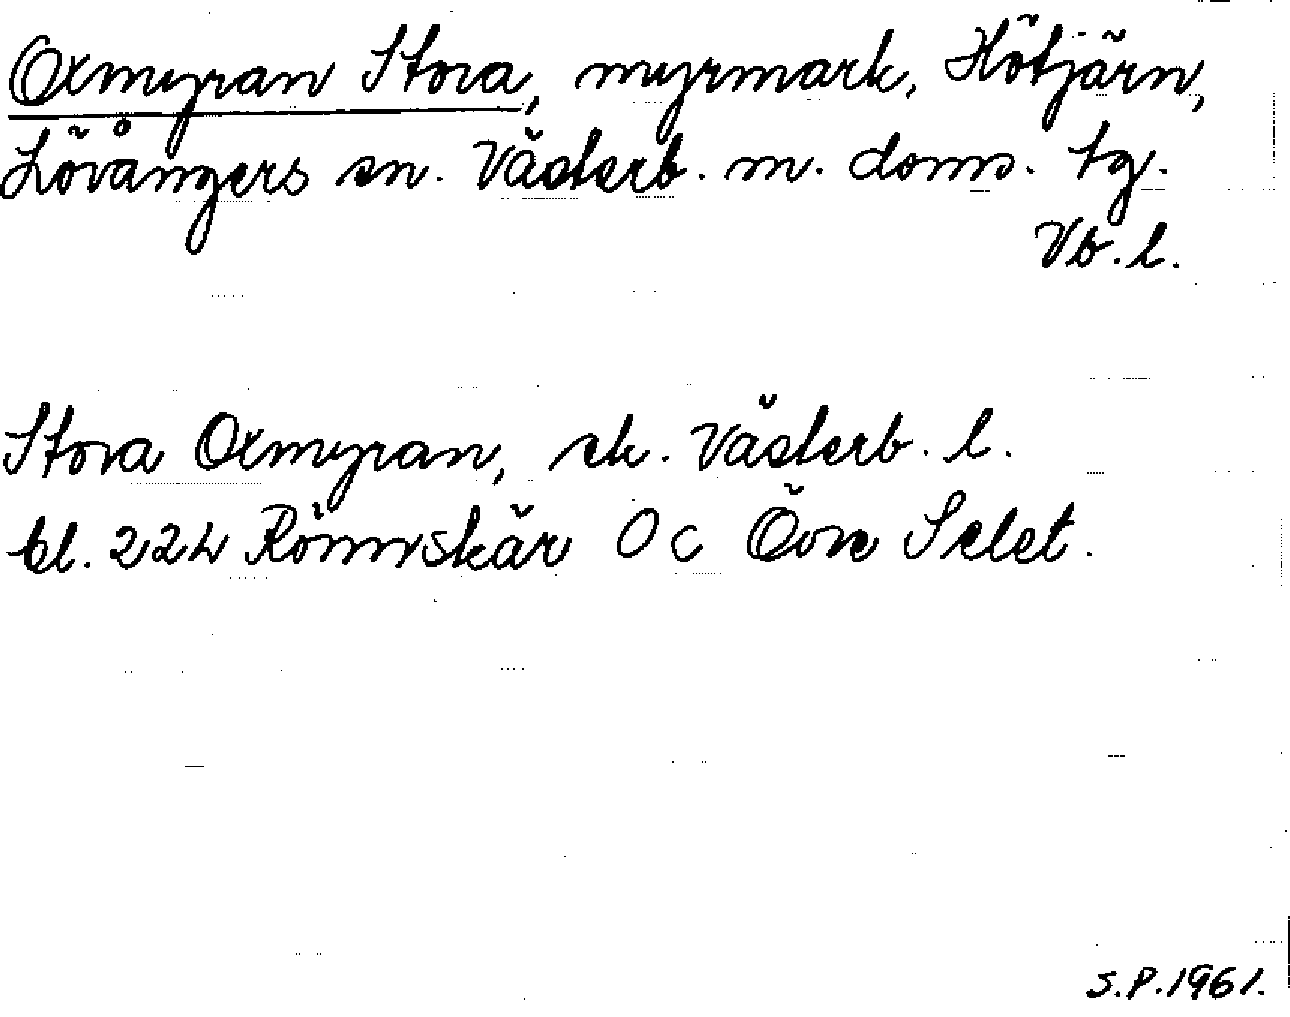 Oxmyran Stora, myrmark, Hötjärn,
Lövångers sn. Västerb. m. doms. tg.
Vb. l.
Stora Oxmyran, ek. Västerb. l.
bl. 224 Rönnskär O c Övre Selet.
S.P. 1961.